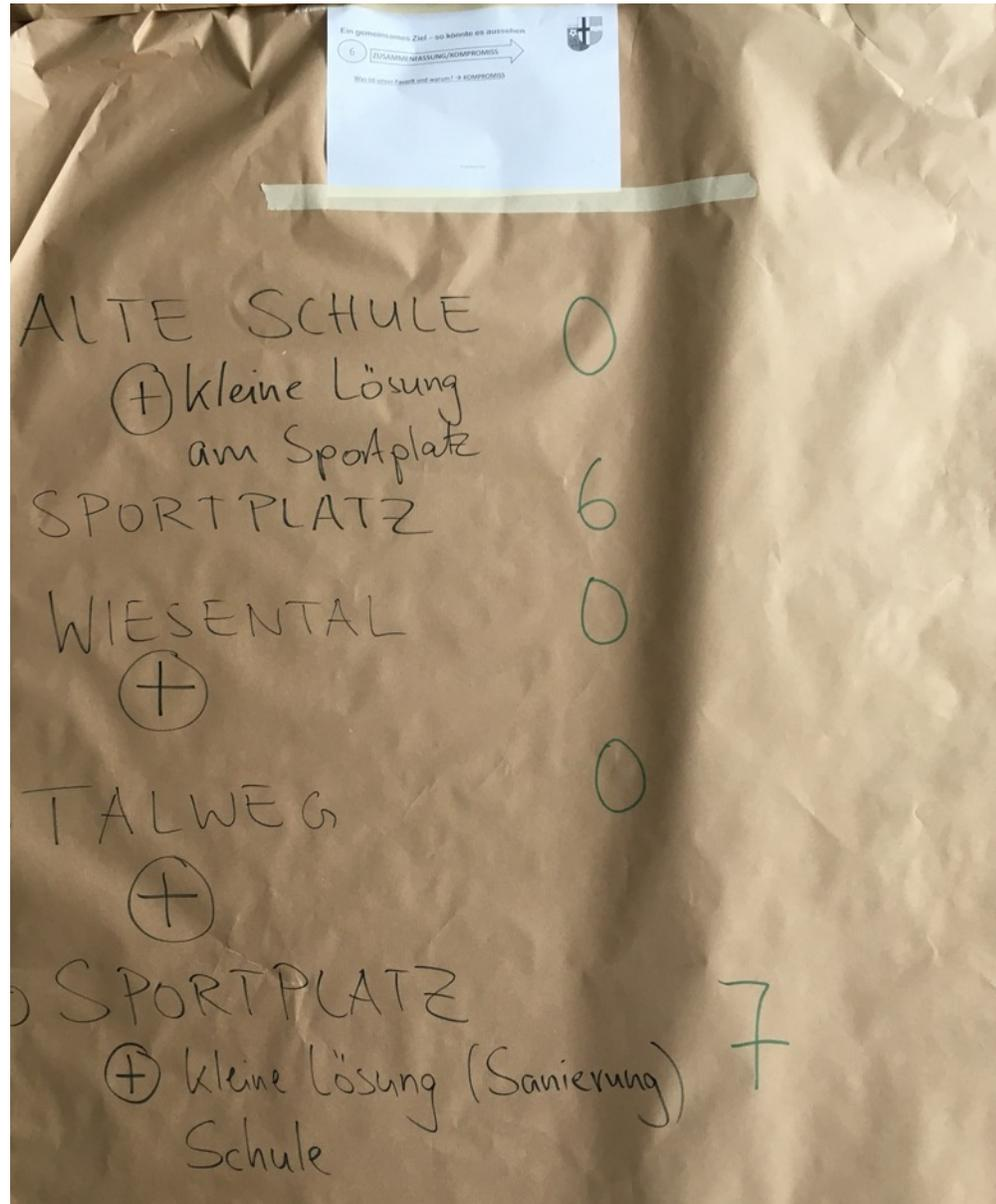 Ein gemeinsames Ziel – so könnte es aussehen
6 ZUSAMMENFASSUNG/KOMPROMISS
Was ist unser Favorit und warum? → KOMPROMISS
ALTE SCHULE 0
+ kleine Lösung
am Sportplatz
SPORTPLATZ 6
WIESENTAL 0
+
TALWEG 0
+
SPORTPLATZ 7
+ kleine Lösung (Sanierung)
Schule